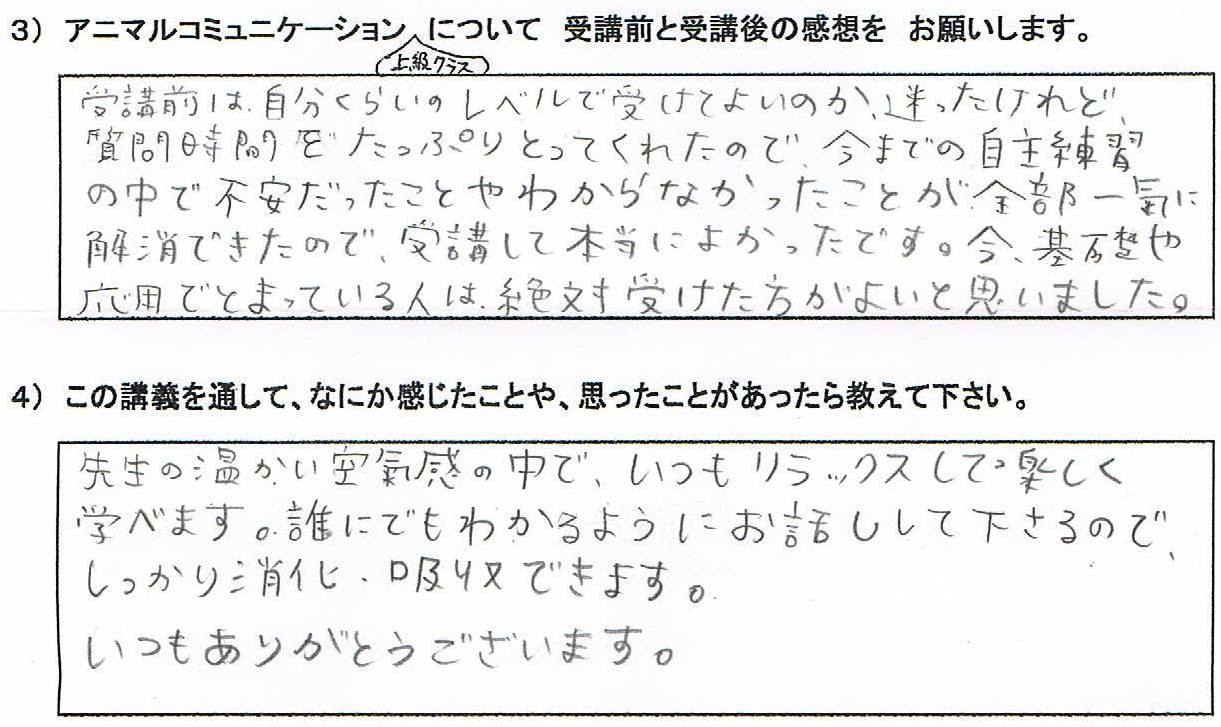 3) アニマルコミュニケーション について 受講前と受講後の感想を お願いします。
上級クラス
受講前は、自分くらいのレベルで受けてよいのか、迷ったけれど、
質問時間をたっぷりとってくれたので、今までの自主練習
の中で不安だったことやわからなかったことが、全部一氣に
解消できたので、受講して本当によかったです。今、基礎や
応用でとまっている人は、絶対受けた方がよいと思いました。
4) この講義を通して、なにか感じたことや、思ったことがあったら教えて下さい。
先生の温かい空氣感の中で、いつもリラックスして楽しく
学べます。誰にでもわかるようにお話しして下さるので、
しっかり消化・吸収できます。
いつもありがとうございます。